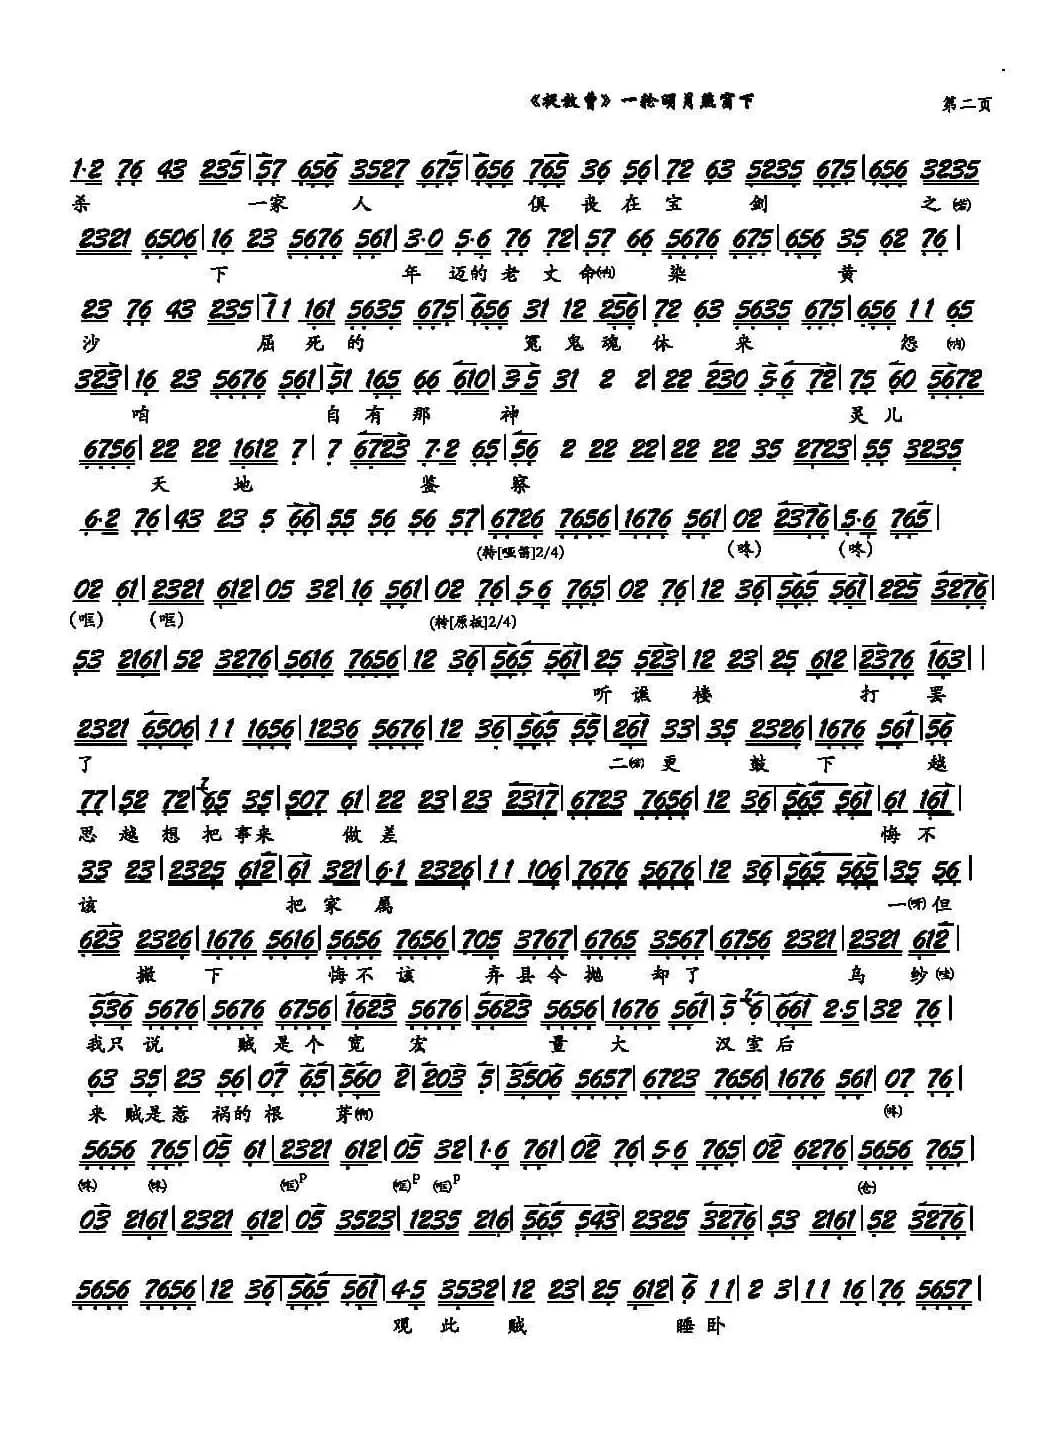 《捉放曹》一轮明月照窗下 第二页
1·2 76 43 235|57 656 3527 675|656 765 36 56|72 63 5235 675|656 3235
杀 一家 人 俱 丧 在 宝 剑 之
2321 6506|16 23 5676 561|3·0 5·6 76 72|57 66 5676 675|656 35 62 76|
下 年 迈的 老 丈 命(内) 染 黄
23 76 43 235|11 161 5635 675|656 31 12 256|72 63 5635 675|656 11 65
沙 屈 死 的 冤 鬼 魂 休 来 怨 (内)
323|16 23 5676 561|51 165 66 610|3·5 31 2 2|22 230 5·6 72|75 60 5672
咱 自 有 那 神 灵 儿
6756|22 22 1612 7|7 6723 7·2 65|56 2 22 22|22 22 35 2723|55 3235
天 地 鉴 察
6·2 76|43 23 5 66|55 56 56 57|6726 7656|1676 561|02 2376|5·6 765|
(转[哑笛]2/4) (咚) (咚)
02 61|2321 612|05 32|16 561|02 76|5·6 765|02 76|12 36|565 561|225 3276|
(哐) (哐) (转[原板]2/4)
53 2161|52 3276|5616 7656|12 36|565 561|25 523|12 23|25 612|2376 163||
听 谯 楼 打 罢
2321 6506|11 1656|1236 5676|12 36|565 55|261 33|35 2326|1676 561|56
了 二 更 鼓 下 越
77|52 72|65 35|507 61|22 23|23 2317|6723 7656|12 36|565 561|61 161|
思 越 想 把 事 来 做 差 悔 不
33 23|2325 612|61 321|6·1 2326|11 106|7676 5676|12 36|565 565|35 56|
该 把 家 属 一 但
623 2326|1676 5616|5656 7656|705 3767|6765 3567|6756 2321|2321 612|
撇 下 悔 不 该 弃 县 令 抛 却 了 乌 纱
536 5676|5676 6756|1623 5676|5623 5656|1676 561|5 6|661 2·5|32 76|
我只 说 贼 是 个 宽 宏 量 大 汉 室 后
63 35|23 56|07 65|560 2|203 5|3506 5657|6723 7656|1676 561|07 76|
来 贼是 惹 祸的 根 芽 (咚)
5656 765|05 61|2321 612|05 32|1·6 761|02 76|5·6 765|02 6276|5656 765|
(咚) (咚) (哐)P (哐)P (哐)P (仓)
03 2161|2321 612|05 3523|1235 216|565 543|2325 3276|53 2161|52 3276|
5656 7656|12 36|565 561|4·5 3532|12 23|25 612|6 11|2 3|11 16|76 5657|
观 此 贼 睡 卧